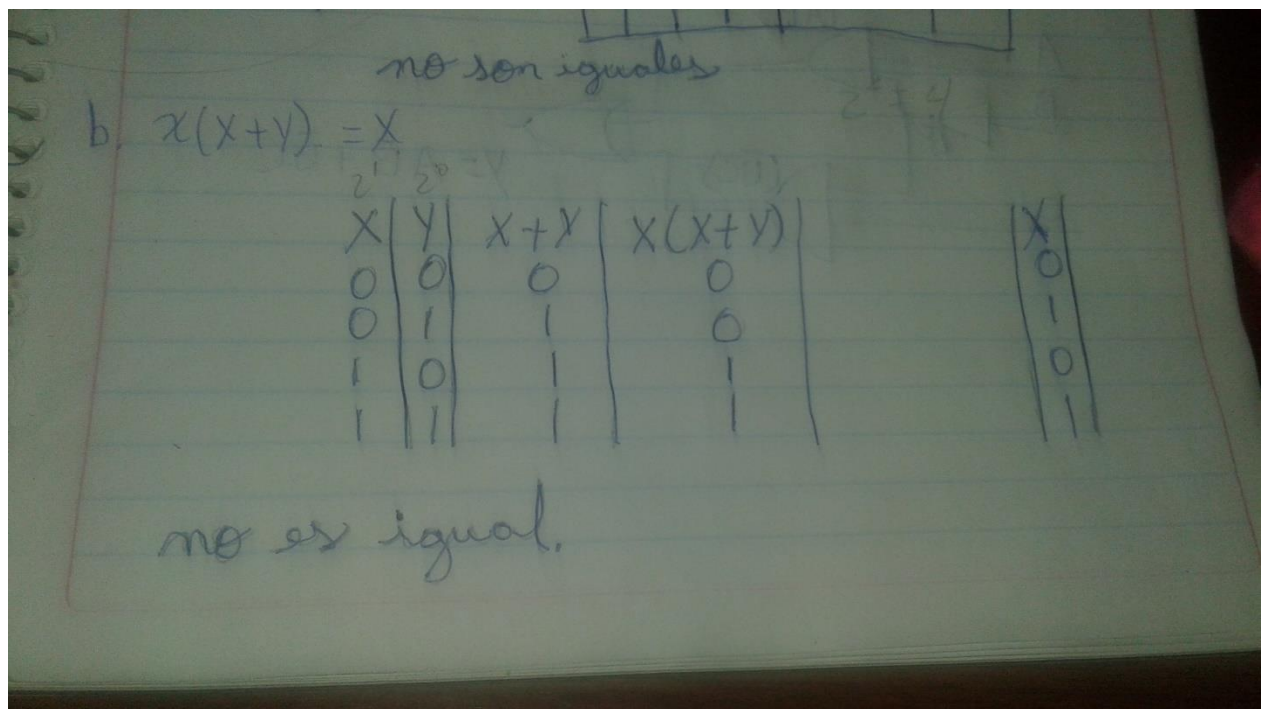 no son iguales
b. x(X+Y) = X
2¹ 2⁰
X Y X+Y X(X+Y) X
0 0 0 0 0
0 1 1 0 1
1 0 1 1 0
1 1 1 1 1
no es igual.